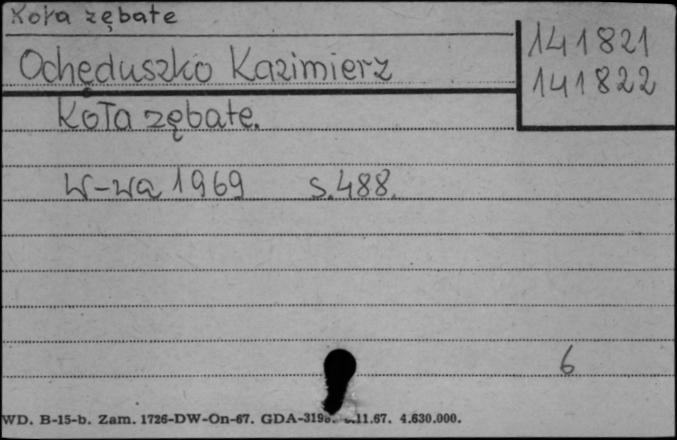 Koła zębate
141821
Ochęduszko Kazimierz
141822
Koła zębate.
W-wa 1969 s.488.
6
WD. B-15-b. Zam. 1726-DW-On-67. GDA-319 .11.67. 4.630.000.